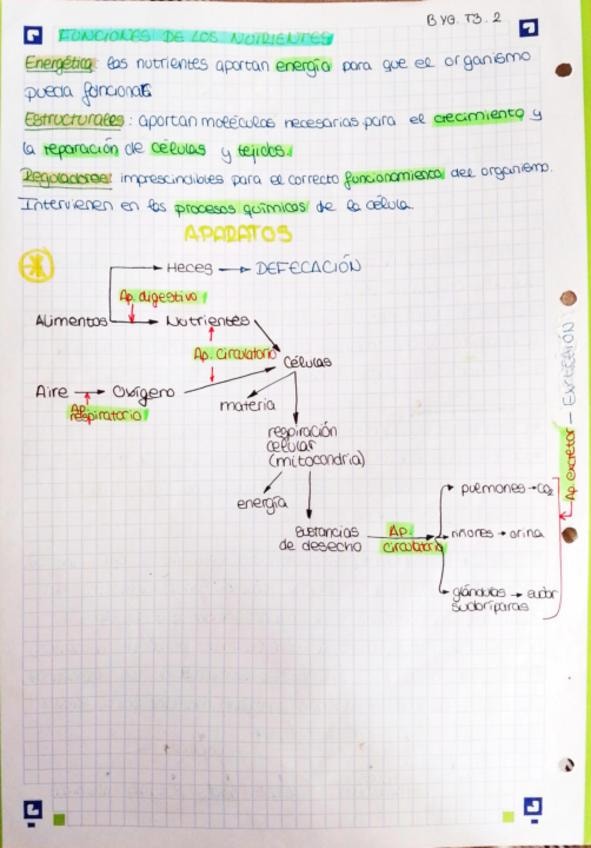 BYG. T3. 2
FUNCIONES DE LOS NUTRIENTES
Energética: los nutrientes aportan energía para que el organismo
pueda funcionar
Estructurales: aportan moléculas necesarias para el crecimiento y
la reparación de células y tejidos.
Reguladores: imprescindibles para el correcto funcionamiento del organismo.
Intervienen en los procesos químicos de la célula.
APARATOS
Heces → DEFECACIÓN
Ap. digestivo
Alimentos → Nutrientes
Ap. circulatorio
Células
Aire → Oxígeno
Ap.
respiratorio
materia
respiración
celular
(mitocondria)
energía
sustancias
de desecho
Ap.
circulatorio
pulmones → CO2
riñones → orina
glándulas → sudor
sudoríparas
Ap. excretor - EXCRECIÓN